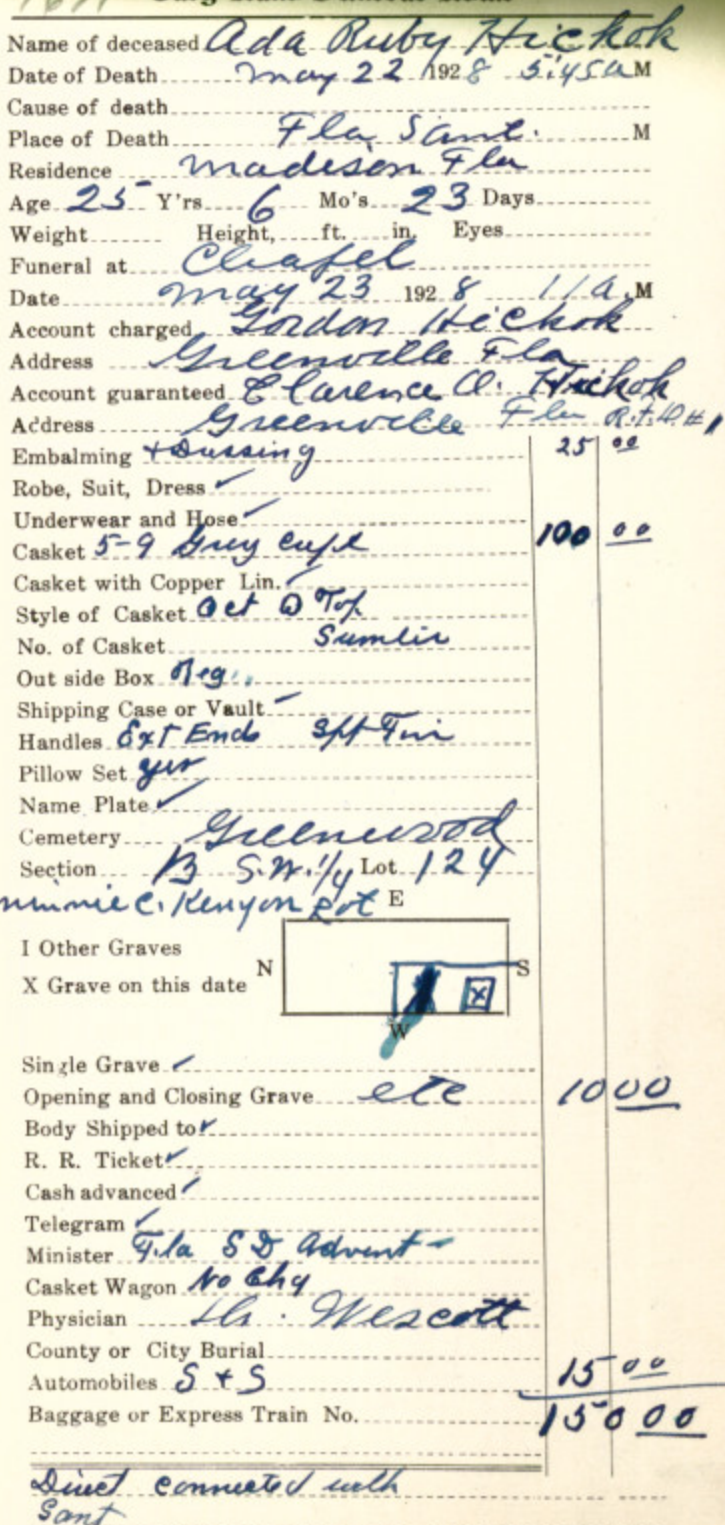 Name of deceased Ada Ruby Hickok
Date of Death May 22 1928 5:45 a M
Cause of death
Place of Death Fla Sant. M
Residence Madison Fla
Age 25 Y'rs 6 Mo's 23 Days
Weight Height, ft. in. Eyes
Funeral at Chapel
Date May 23 1928 11 a.M
Account charged Gordon Hickok
Address Greenville Fla
Account guaranteed Clarence O. Hickok
Address Greenville Fla R.F.D. #1
Embalming + Dressing 25 00
Robe, Suit, Dress ✓
Underwear and Hose ✓
Casket 5-9 Grey 100 00
Casket with Copper Lin. ✓
Style of Casket Oct Top
No. of Casket
Out side Box Reg.
Shipping Case or Vault -
Handles Ext Ends
Pillow Set yes
Name Plate ✓
Cemetery Greenwood
Section B S.W. 1/4 Lot 124
Minnie C. Kenyon Lot E
I Other Graves
N S
X Grave on this date X
W
Single Grave ✓
Opening and Closing Grave etc 10 00
Body Shipped to ✓
R. R. Ticket ✓
Cash advanced ✓
Telegram ✓
Minister Fla S D Advent -
Casket Wagon No Chg
Physician Dr. Wescott
County or City Burial
Automobiles S + S 15 00
Baggage or Express Train No. 150 00
Direct connected with
Sant